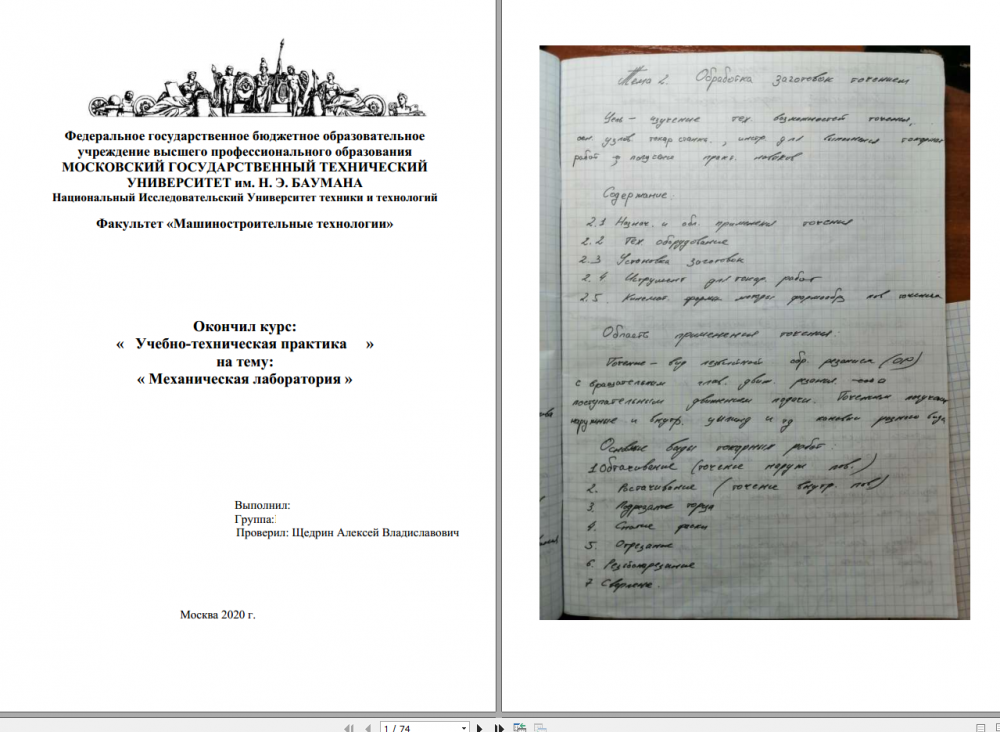 Федеральное государственное бюджетное образовательное
учреждение высшего профессионального образования
МОСКОВСКИЙ ГОСУДАРСТВЕННЫЙ ТЕХНИЧЕСКИЙ
УНИВЕРСИТЕТ им. Н. Э. БАУМАНА
Национальный Исследовательский Университет техники и технологий
Факультет «Машиностроительные технологии»
Окончил курс:
« Учебно-техническая практика »
на тему:
« Механическая лаборатория »
Выполнил:
Группа:
Проверил: Щедрин Алексей Владиславович
Москва 2020 г.
Тема 2. Обработка заготовок точением
Цель – изучение тех. возможностей точения,
узлов токар. станка, для выполнения токарных
работ практ. навыков
Содержание:
2.1 Назнач. и обл. применения точения
2.2 Тех. оборудование
2.3 Установка заготовок
2.4 Инструмент для токар. работ
2.5. точения
Область применения точения:
Точение – вид лезвийной обр. резанием (ОЛО)
с вращательным глав. движ. резания и
поступательным движением подачи. Точением получают
наружные и внутр. разного вида
Основные виды токарных работ:
1. Обтачивание (точение наруж. пов.)
2. Растачивание (точение внутр. пов)
3. Подрезание торца
4. Снятие фаски
5. Отрезание
6. Резьбонарезание
7. Сверление.
1 / 74